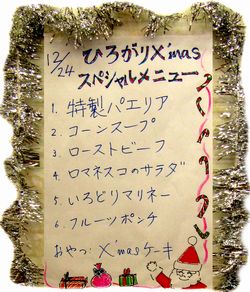 12/24
ひろがりX'mas
スペシャルメニュー
1. 特製パエリア
2. コーンスープ
3. ローストビーフ
4. ロマネスコのサラダ
5. いろどりマリネー
6. フルーツポンチ
おやつ: X'masケーキ